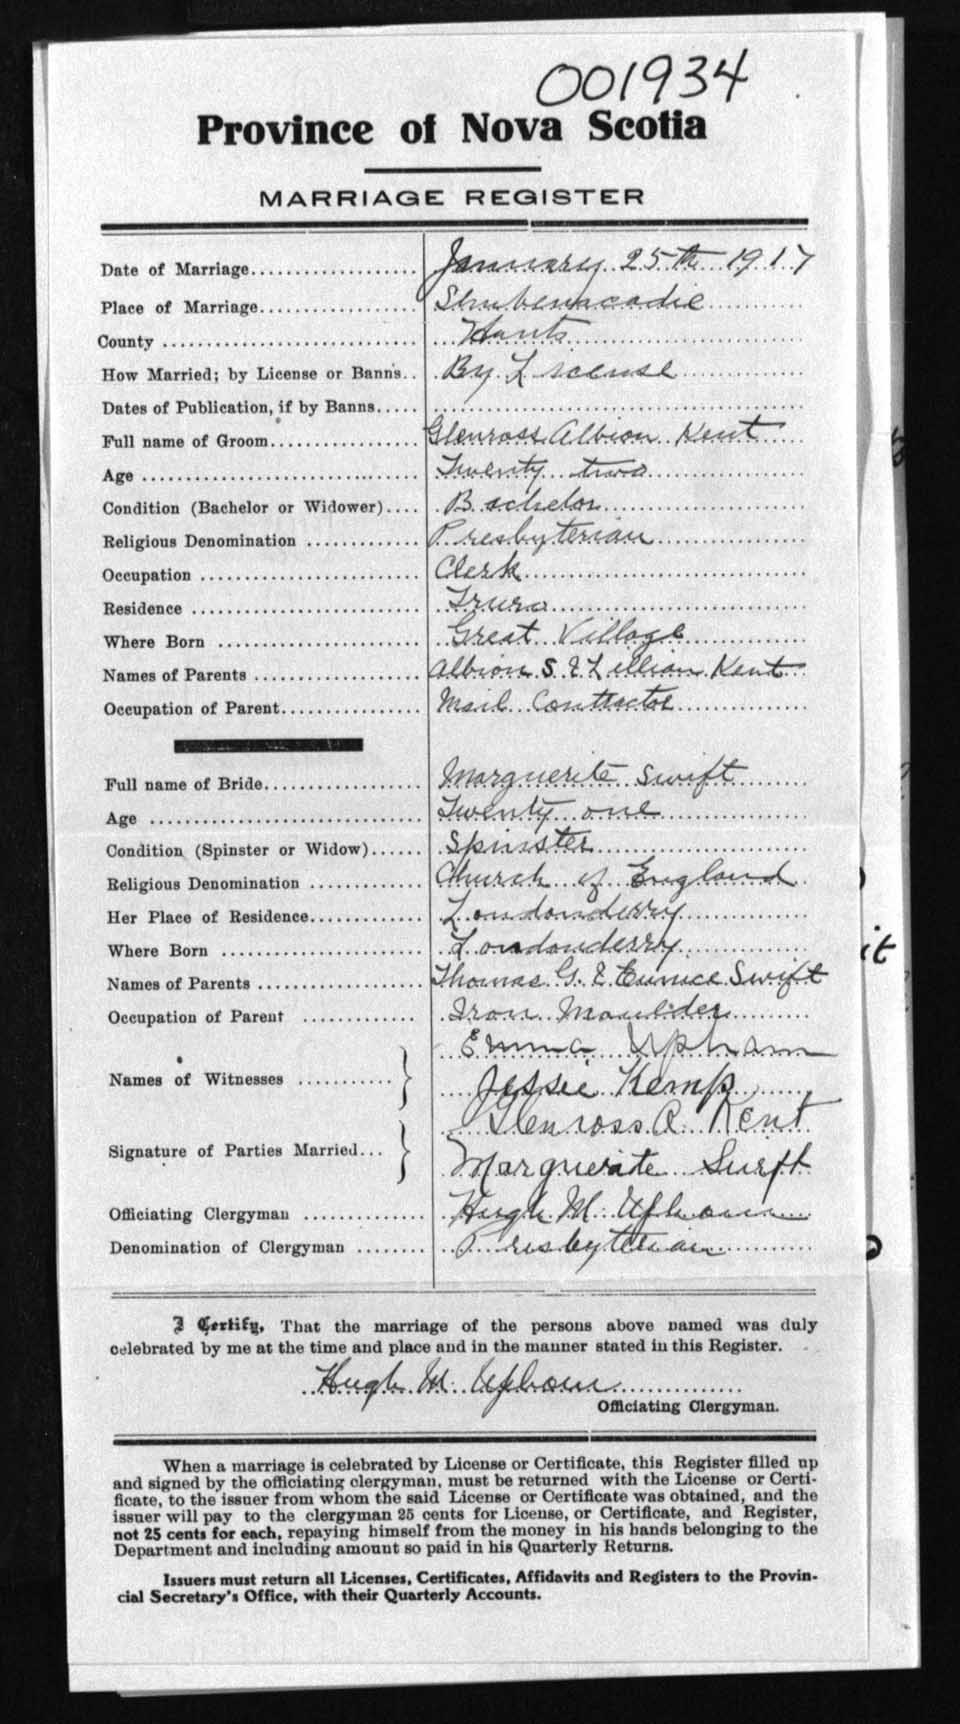 001934
Province of Nova Scotia
MARRIAGE REGISTER
Date of Marriage.................. January 25th 1917
Place of Marriage................. Shubenacadie
County ........................... Hants
How Married; by License or Banns.. By License
Dates of Publication, if by Banns.....
Full name of Groom................ Glenross Albion Kent
Age .............................. Twenty two
Condition (Bachelor or Widower).... Bachelor
Religious Denomination ............ Presbyterian
Occupation ....................... Clerk
Residence ........................ Truro
Where Born ....................... Great Village
Names of Parents .................. Albion S. & Lillian Kent
Occupation of Parent............... Mail Contractor
Full name of Bride................. Marguerite Swift
Age .............................. Twenty one
Condition (Spinster or Widow)...... Spinster
Religious Denomination ............ Church of England
Her Place of Residence............. Londonderry
Where Born ....................... Londonderry
Names of Parents .................. Thomas G. & Eunice Swift
Occupation of Parent ............. Iron Moulder
Emma Upham
Names of Witnesses ............ } Jessie Kemp
Glenross A. Kent
Signature of Parties Married... } Marguerite Swift
Officiating Clergyman .............. Hugh M. Upham
Denomination of Clergyman ........ Presbyterian
I Certify, That the marriage of the persons above named was duly
celebrated by me at the time and place and in the manner stated in this Register.
Hugh M. Upham
Officiating Clergyman.
When a marriage is celebrated by License or Certificate, this Register filled up
and signed by the officiating clergyman, must be returned with the License or Certi-
ficate, to the issuer from whom the said License or Certificate was obtained, and the
issuer will pay to the clergyman 25 cents for License, or Certificate, and Register,
not 25 cents for each, repaying himself from the money in his hands belonging to the
Department and including amount so paid in his Quarterly Returns.
Issuers must return all Licenses, Certificates, Affidavits and Registers to the Provin-
cial Secretary's Office, with their Quarterly Accounts.
it